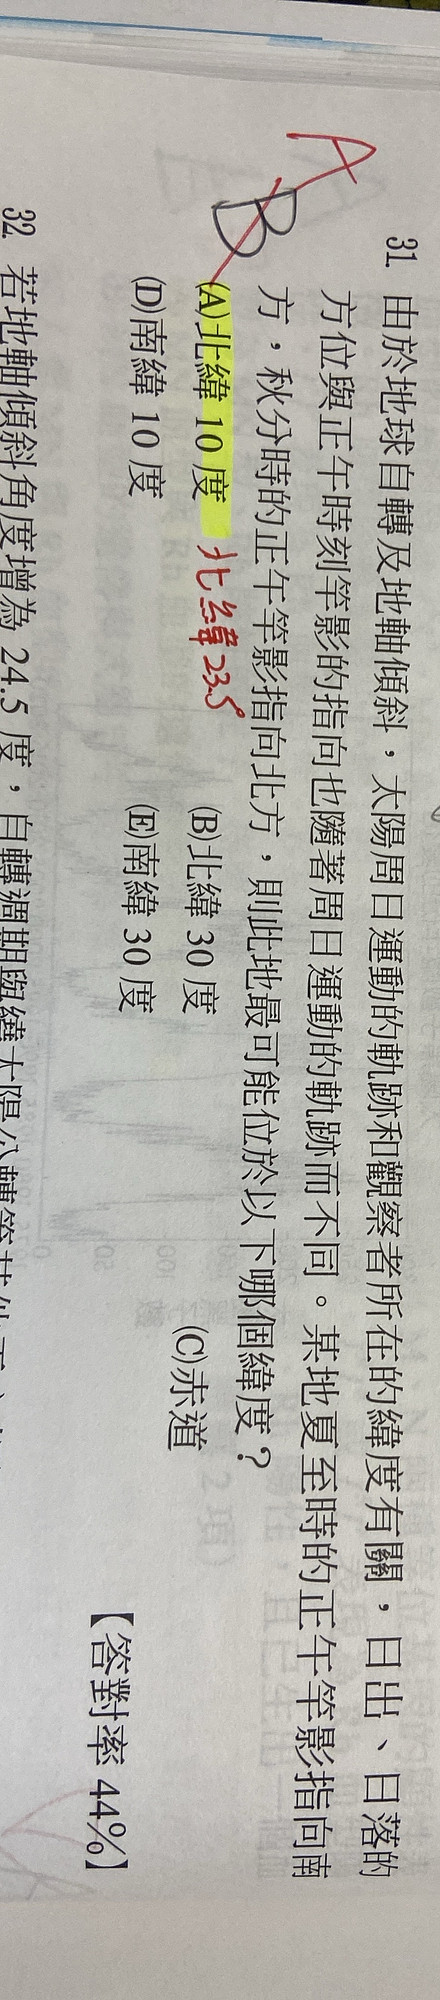 A
B
31. 由於地球自轉及地軸傾斜，太陽周日運動的軌跡和觀察者所在的緯度有關，日出、日落的
方位與正午時刻竿影的指向也隨著周日運動的軌跡而不同。某地夏至時的正午竿影指向南
方，秋分時的正午竿影指向北方，則此地最可能位於以下哪個緯度？
(A)北緯 10 度 北緯23.5° (B)北緯 30 度 (C)赤道
(D)南緯 10 度 (E)南緯 30 度
【答對率 44%】
32. 若地軸傾斜角度增為 24.5 度，自轉週期與繞太陽公轉等其他